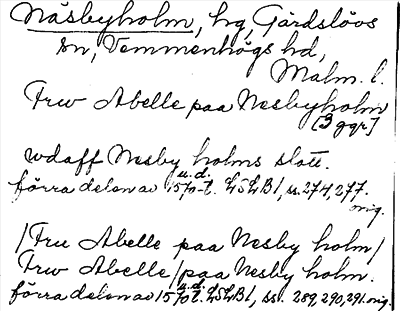 Näsbyholm, hg, Gärdslövs
sn, Vemmenhögs hd,
Malm. l.
Frw Abelle paa Nesbyholm
[3 ggr]
wdaff Nesby holms slott.
u. d.
förra delen av 1570-t. LSLB1, ss. 274, 277.
orig.
/Fru Abelle paa Nesby holm/
Frw Abelle /paa Nesby holm.
u. d.
förra delen av 1570-t. LSLB1, ss. 289, 290, 291 orig.